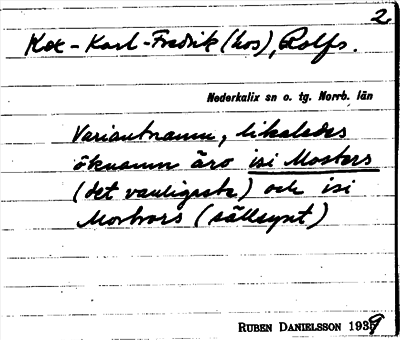 2.
Kok-Karl-Fredrik (hos), Rolfs.
Nederkalix sn o. tg. Norrb. län
Variantnamn, likaledes
öknamn äro isi Mosters
(det vanligaste) och isi
Morbrors (sällsynt)
RUBEN DANIELSSON 1939